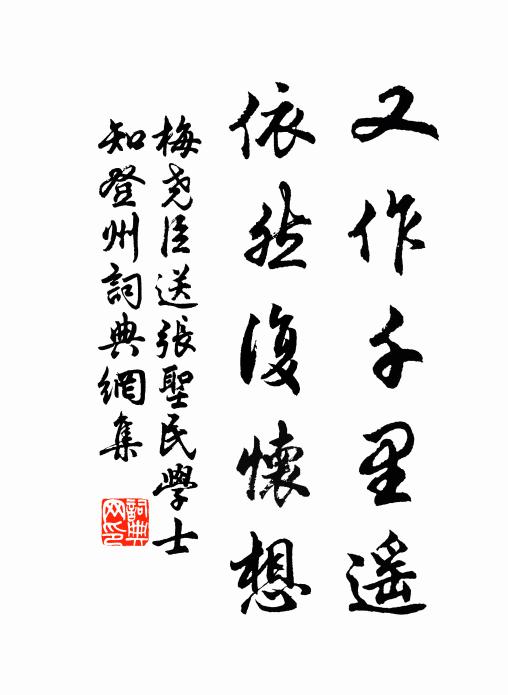 又作千里遥
依然復懷想
梅尧臣送張聖民學士
知登州詞典網集
詞典
网印